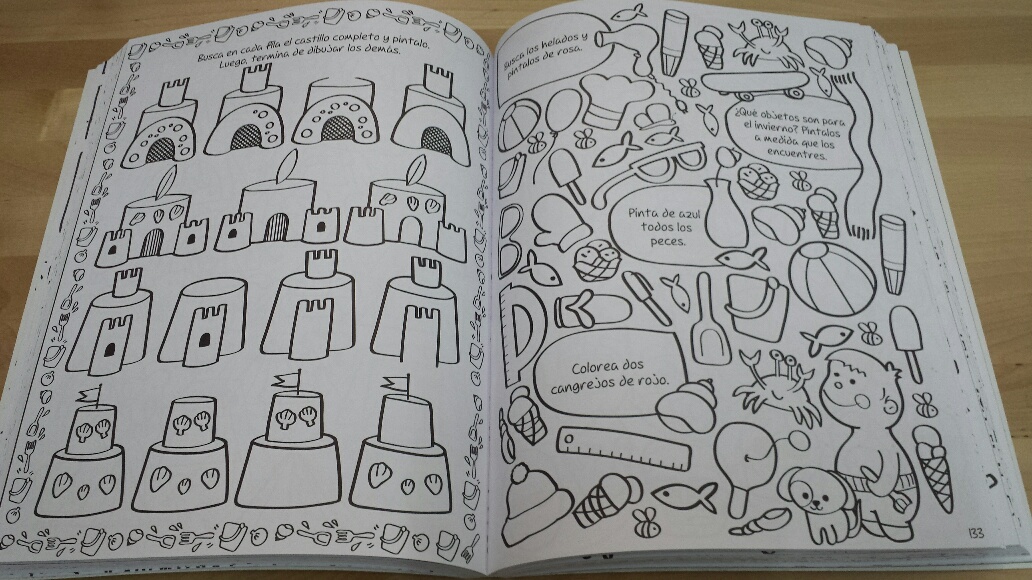 Busca en cada fila el castillo completo y píntalo.
Luego, termina de dibujar los demás.
Busca los helados y
píntalos de rosa.
¿Qué objetos son para
el invierno? Píntalos
a medida que los
encuentres.
Pinta de azul
todos los
peces.
Colorea dos
cangrejos de rojo.
133